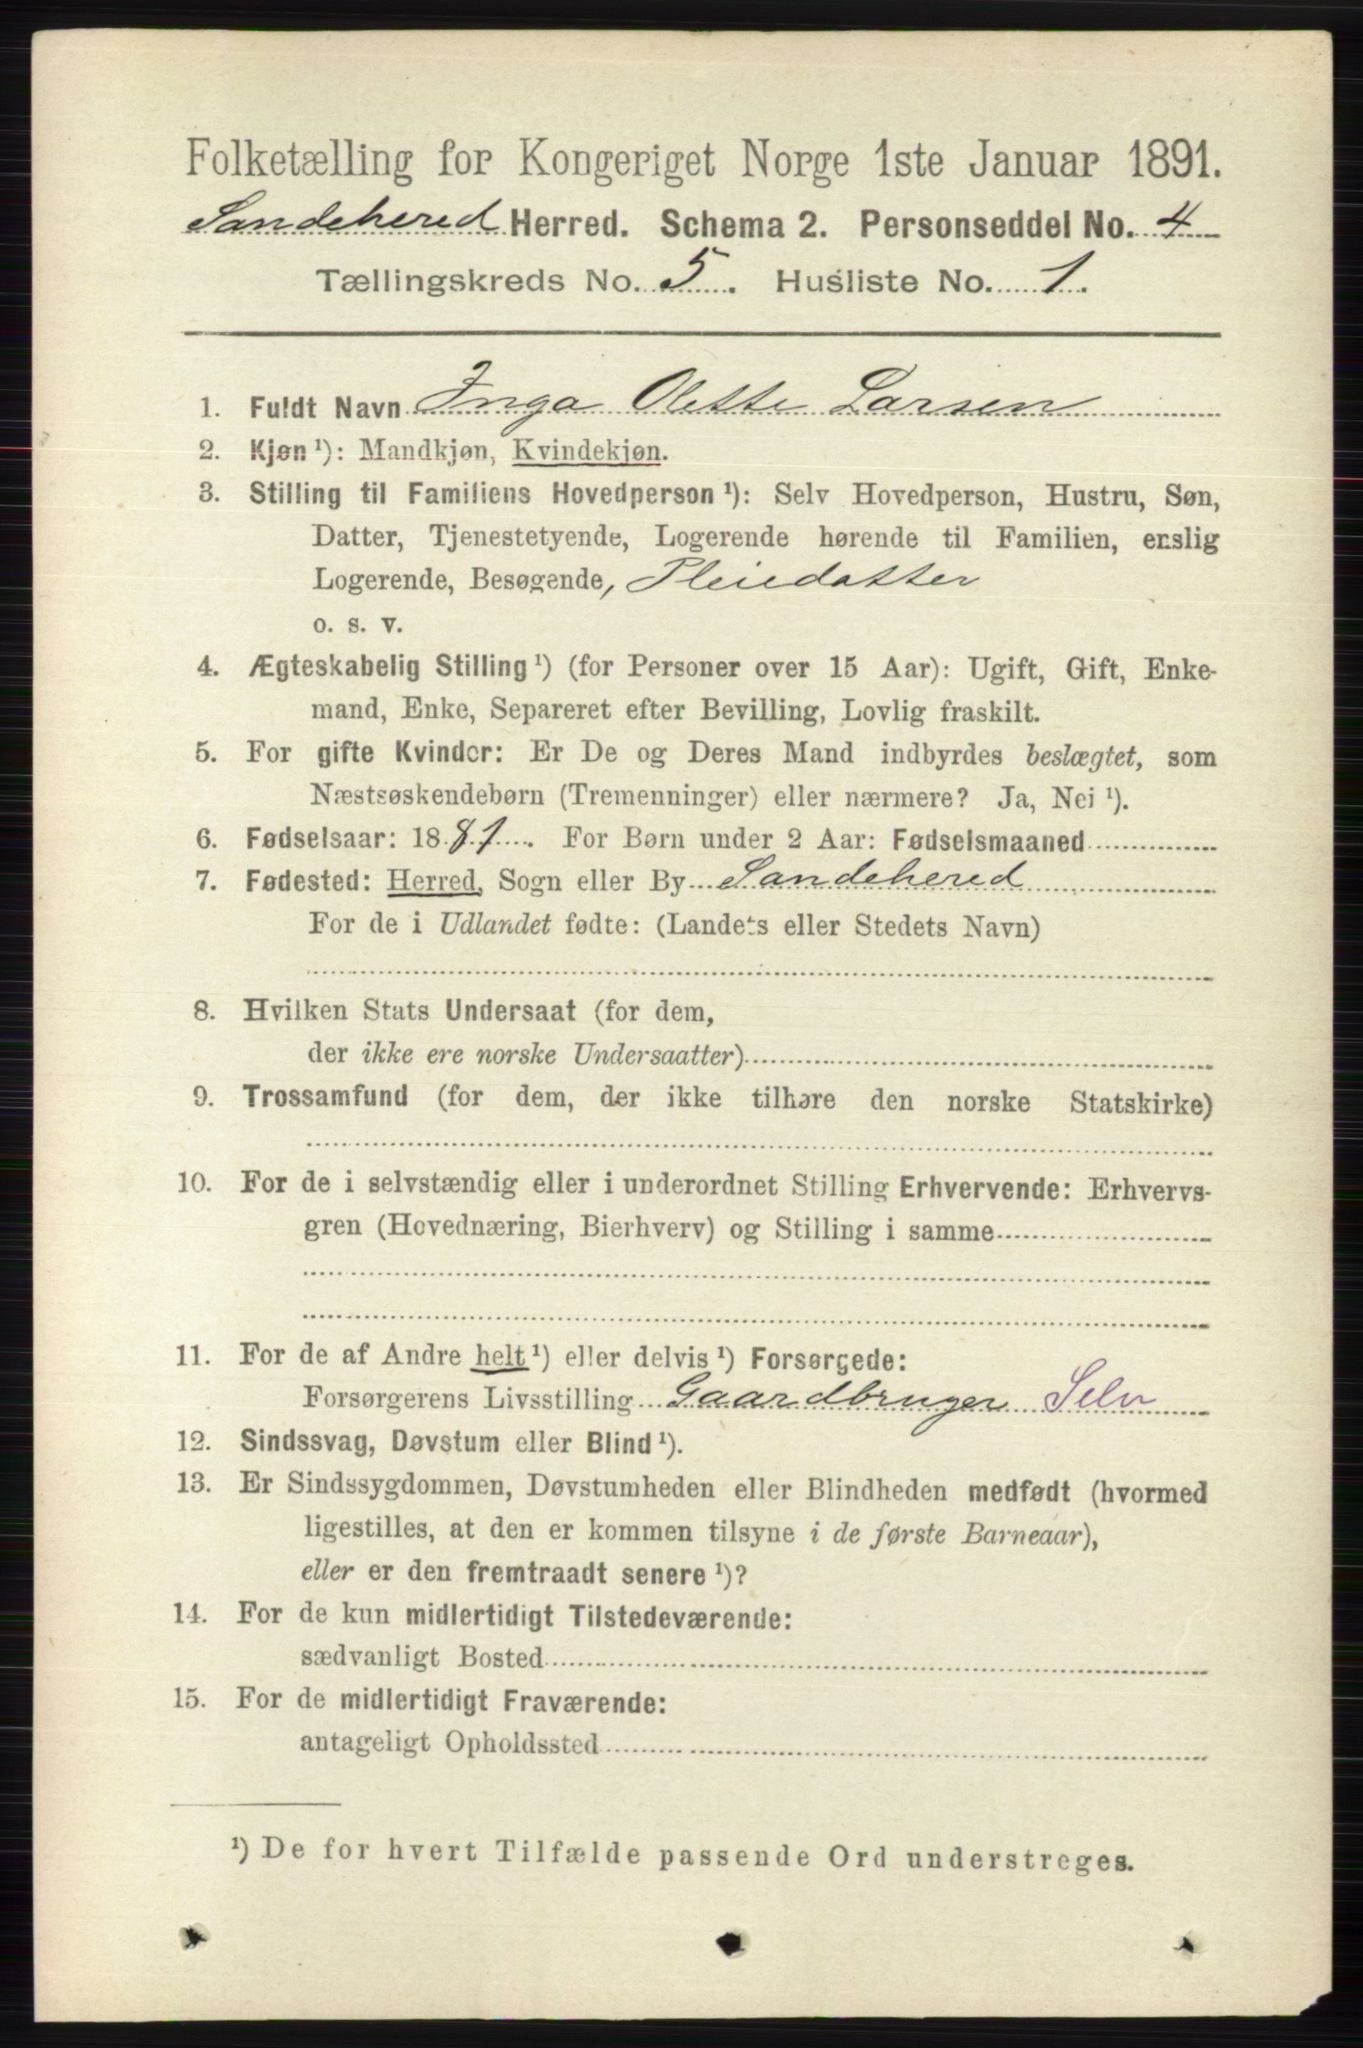 Folketælling for Kongeriget Norge 1ste Januar 1891.
Sandehered Herred. Schema 2. Personseddel No. 4
Tællingskreds No. 5. Husliste No. 1.
1. Fuldt Navn Inga Olette Larsen
2. Kjøn¹): Mandkjøn, Kvindekjøn.
3. Stilling til Familiens Hovedperson¹): Selv Hovedperson, Hustru, Søn,
Datter, Tjenestetyende, Logerende hørende til Familien, enslig
Logerende, Besøgende, Pleiedatter
o. s. v.
4. Ægteskabelig Stilling¹) (for Personer over 15 Aar): Ugift, Gift, Enke-
mand, Enke, Separeret efter Bevilling, Lovlig fraskilt.
5. For gifte Kvinder: Er De og Deres Mand indbyrdes beslægtet, som
Næstsøskendebørn (Tremenninger) eller nærmere? Ja, Nei¹).
6. Fødselsaar: 1881. For Børn under 2 Aar: Fødselsmaaned
7. Fødested: Herred, Sogn eller By Sandehered
For de i Udlandet fødte: (Landets eller Stedets Navn)
8. Hvilken Stats Undersaat (for dem,
der ikke ere norske Undersaatter)
9. Trossamfund (for dem, der ikke tilhøre den norske Statskirke)
10. For de i selvstændig eller i underordnet Stilling Erhvervende: Erhvervs-
gren (Hovednæring, Bierhverv) og Stilling i samme
11. For de af Andre helt¹) eller delvis¹) Forsørgede:
Forsørgerens Livsstilling Gaardbruger Selv
12. Sindssvag, Døvstum eller Blind¹).
13. Er Sindssygdommen, Døvstumheden eller Blindheden medfødt (hvormed
ligestilles, at den er kommen tilsyne i de første Barneaar),
eller er den fremtraadt senere¹)?
14. For de kun midlertidigt Tilstedeværende:
sædvanligt Bosted
15. For de midlertidigt Fraværende:
antageligt Opholdssted
¹) De for hvert Tilfælde passende Ord understreges.